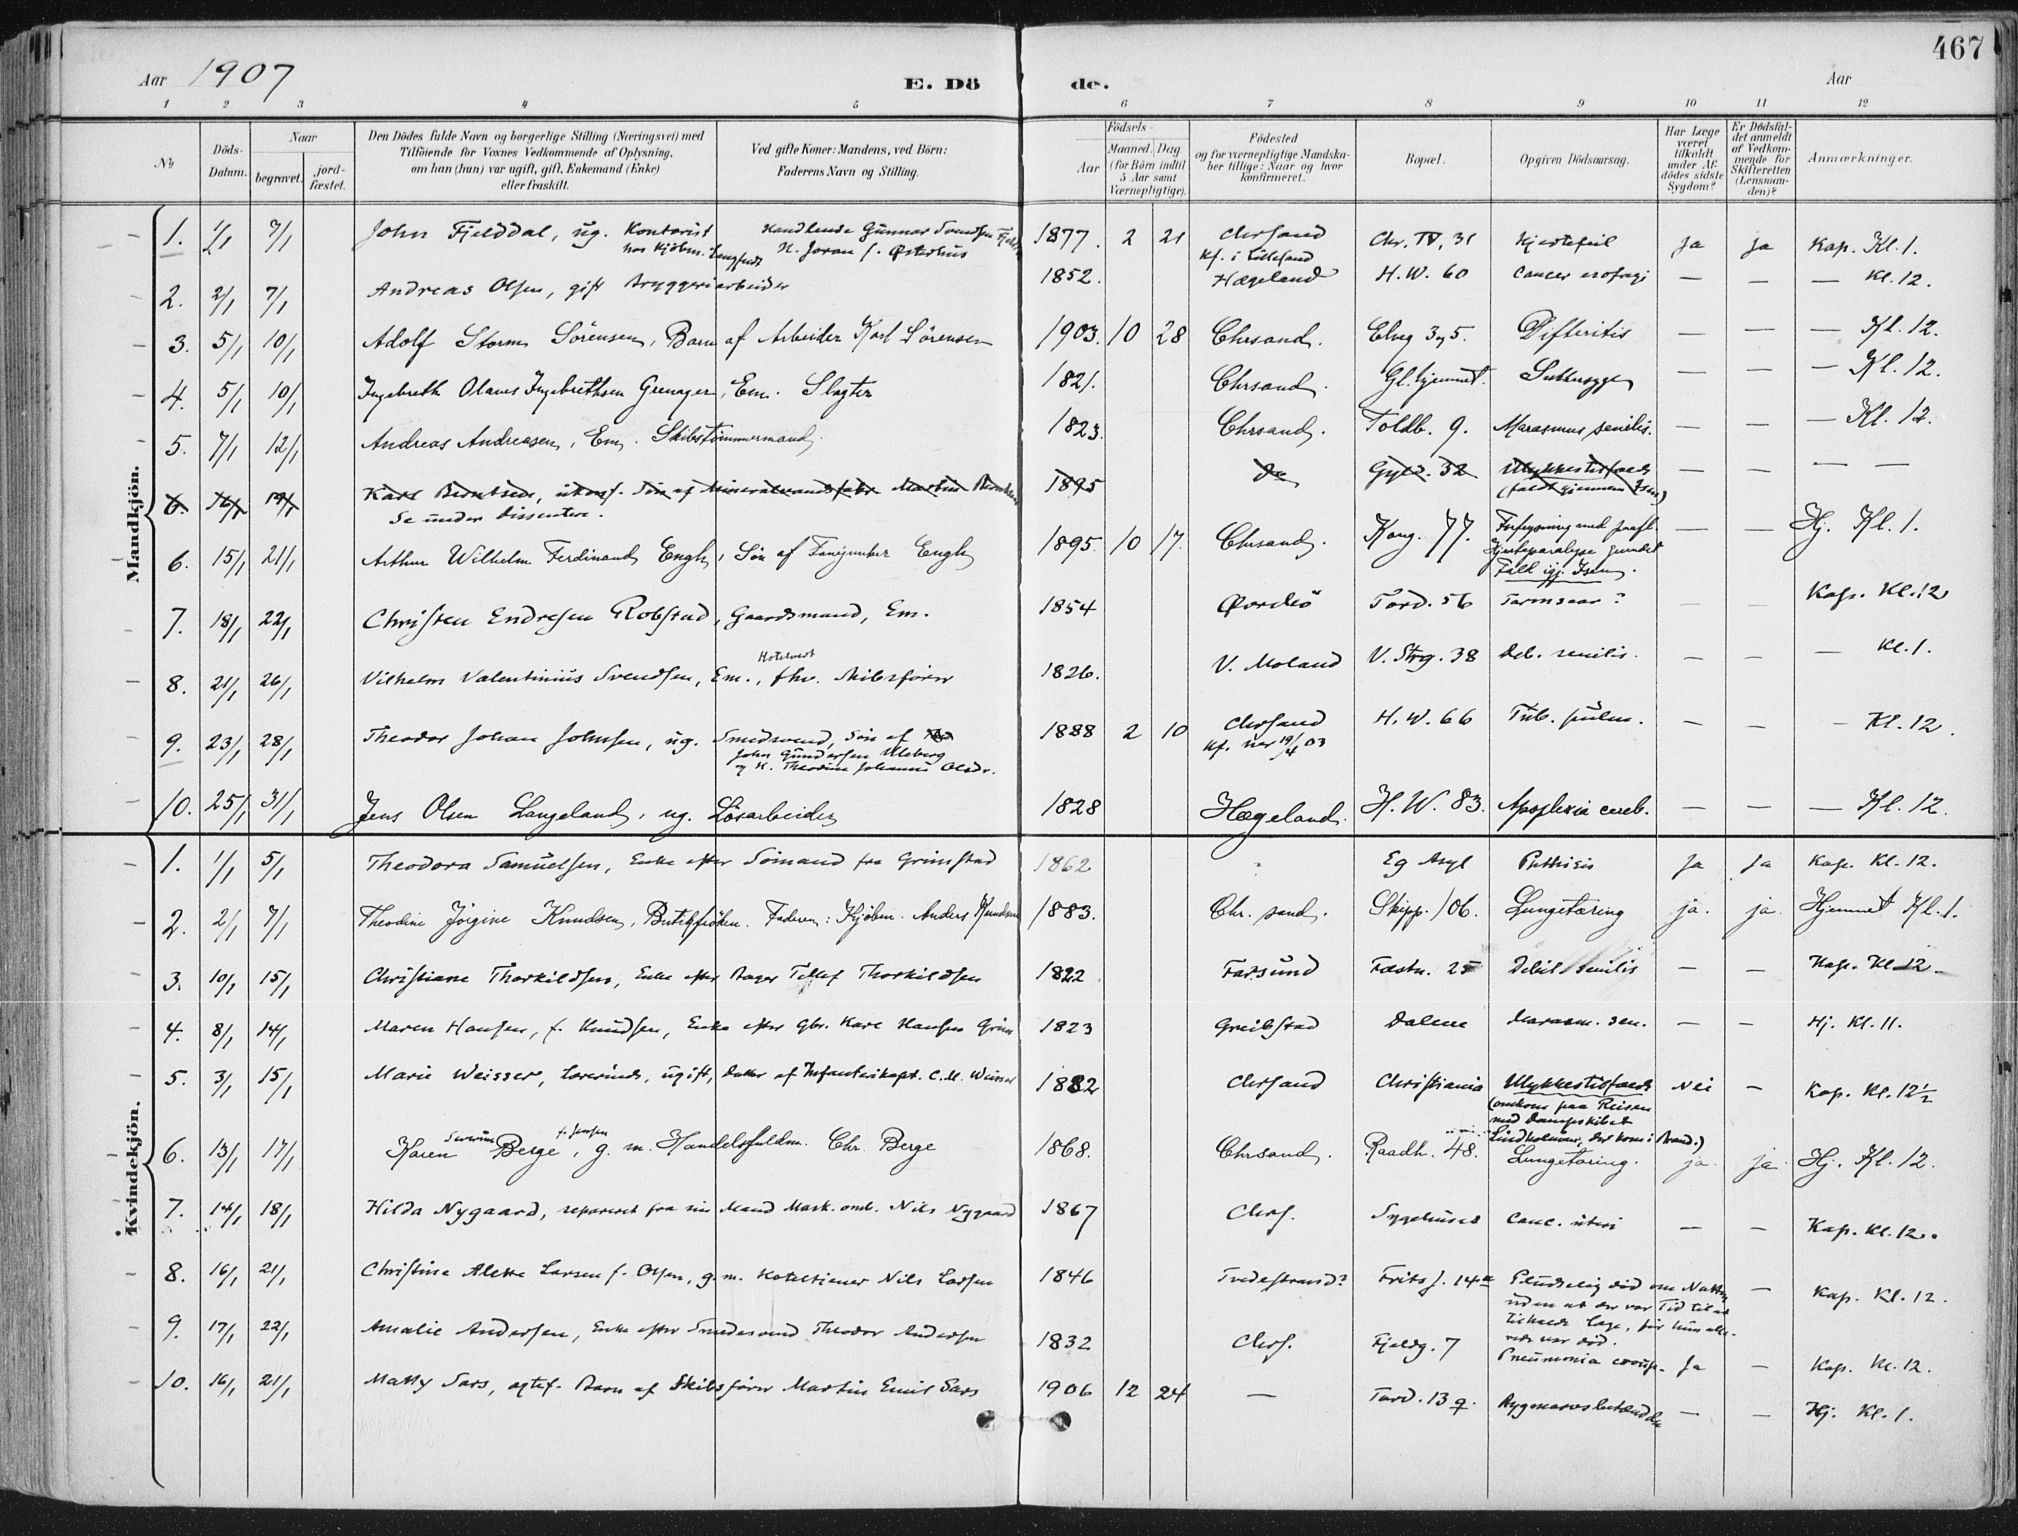 467
Aar 1907 E. Dö de. Aar
1 2 3 4 5 6 7 8 9 10 11 12
No
Döds-Datum.
Naar
begravet.
jord-fæstet.
Den Dödes fulde Navn og borgerlige Stilling (Næringsvei) med
Tilföiende for Voxnes Vedkommende af Oplysning,
om han (hun) var ugift, gift, Enkemand (Enke)
eller fraskilt.
Ved gifte Koner: Mandens, ved Börn:
Faderens Navn og Stilling.
Födsels-
Aar
Maaned. Dag
(for Börn indtil
5 Aar samt
Værnepligtige).
Födested
og for værnepligtige Mandska-
ber tillige: Naar og hvor
konfirmeret.
Bopæl.
Opgiven Dödsaarsag.
Har Læge
været
tilkaldt
under Af-
dödes sidste
Sygdom?
Er Dödsfal-
det anmeldt
af Vedkom-
mende for
Skifteretten
(Lensman-
den)?
Anmærkninger.
Mandkjön.
1. 1/1 7/1 John Fjelddal, ug. Kontorist Handlende Gunnar Svendsen 1877. 2 21 Chrsand Chr. IV, 31 Hjertefeil ja ja Kap. Kl. 1.
hos Kjøbm. H. Joran f. Østerhus Kf. i Lillesand
2. 2/1 7/1 Andreas Olsen, gift Bryggeriarbeider 1852. Hægeland H. W. 60 Cancer esofagi — — — Kl. 12.
3. 5/1 10/1 Adolf Storm Sörensen, Barn af Arbeider Karl Sörensen 1903. 10 28 Chrsand. Elveg 35. Difteritis — — — Kl. 12.
4. 5/1 10/1 Ingebreth Olaves Ingebrethsen Grenager, Em. Slagter 1821. Chrsand. Gl. hjemmet. Sukkersyge — — — Kl. 12.
5. 7/1 12/1 Andreas Andreasen, Em. Skibstömmermand. 1823. Chrsand. Toldb. 9. Marasmus senilis. — — — Kl. 12.
6. 16/1 19/1 Karl Berntsen, ukonf. Søn af Mineralvandsfabr. Martin Berntsen 1895 Do Gyld. 32 Ulykkestilfælde — — — —
Se under Dissentere. (faldt gjennem Isen)
6. 15/1 21/1 Arthur Wilhelm Ferdinand Engh, Sön af Fanejunker Engh 1895. 10 17. Chrsand. Kong. 77. — — Hj. Kl. 1.
Hjerteparalyse
Falt igj. Isen.
7. 18/1 22/1 Christen Endresen Robstad, Gaardsmand, Em. 1854 Øvrebö Tord. 56 Tarmsaar? — Kap. Kl. 12
Hotelvert
8. 21/1 26/1 Vilhelm Valentinius Svendsen, Em., fhv. Skibsförer 1826. V. Moland V. Strg. 38 Deb. senilis. — — — Kl. 1.
9. 23/1 28/1 Theodor Johan Johnsen, ug. Smedsvend, Sön af 1888 2 10 Chrsand H. W. 66 Tub. pulm. — — — Kl. 12.
John Gundersen Uleberg Kf. her 19/4 03
og H. Theodine Johanne Olsdr.
10. 25/1 31/1 Jens Olsen Langeland, ug. Lösarbeider 1828 Hægeland. H. W. 83. Apoplexia cereb. — — — Kl. 12.
Kvindekjön.
1. 1/1 5/1 Theodora Samuelsen, Enke efter Sömand fra Grimstad 1862 ? Eg Asyl Phthisis Ja Ja Kap. Kl. 12.
2. 2/1 7/1 Theodine Jörgine Knudsen, Butikfröken. Faderen: Kjöbm. Anders Knudsen 1883. Chr. sand. Skipp. 106. Lungetæring ja. ja. Hjemmet Kl. 1.
3. 10/1 15/1 Christiane Thorkildsen, Enke efter Bager Tellef Thorkildsen 1822 Farsund Fæstn. 25 Debil. senilis — — Kap. Kl. 12.
4. 8/1 14/1 Maren Hansen, f. Knudsen, Enke efter Gbr. Kare Hansen Grim 1823 Greibstad Dalene Marasm. sen. — — Hj. Kl. 11.
5. 3/1 15/1 Marie Weisser, Lærerinde, ugift, Datter af Infanterikapt. C. M. Weisser 1882 Chrsand Christiania Ulykkestilfælde Nei — Kap. Kl. 12½
(omkom paa Reisen
med Dampskibet
Lindholmen, der kom i Brand.)
6. 13/1 17/1 Karen Severine Berge, f. Jensen g. m. Handelsfuldm. Chr. Berge 1868. Chrsand. Raadh. 48. Lungetæring. ja. ja. Hj. Kl. 12.
7. 14/1 18/1 Hilda Nygaard, separeret fra sin Mand Mask.omb. Nils Nygaard 1867 Chrs. Sygehuset Canc. uteri — — Kap. Kl. 12.
8. 16/1 21/1 Christine Alette Larsen f. Olsen, g. m. Hoteltiener Nils Larsen 1846 Tvedestrand? Frits J. 14 Pludselig död om Natten — Kap. Kl. 12.
uden at der var Tid til at
tilkalde Læge, før hun alle-
rede var død.
9. 17/1 22/1 Amalie Andersen, Enke efter Smedesvend Theodor Andersen 1832 Chrs. Fjeldg. 7 Pneumonia croup. Ja — Kap. Kl. 12.
10. 16/1 21/1 Matty Sars, ægtef. Barn af Skibsförer Martin Emil Sars 1906 12 24 — Tord. 13 Rygmarvsbetændelse — — Hj. Kl. 1.